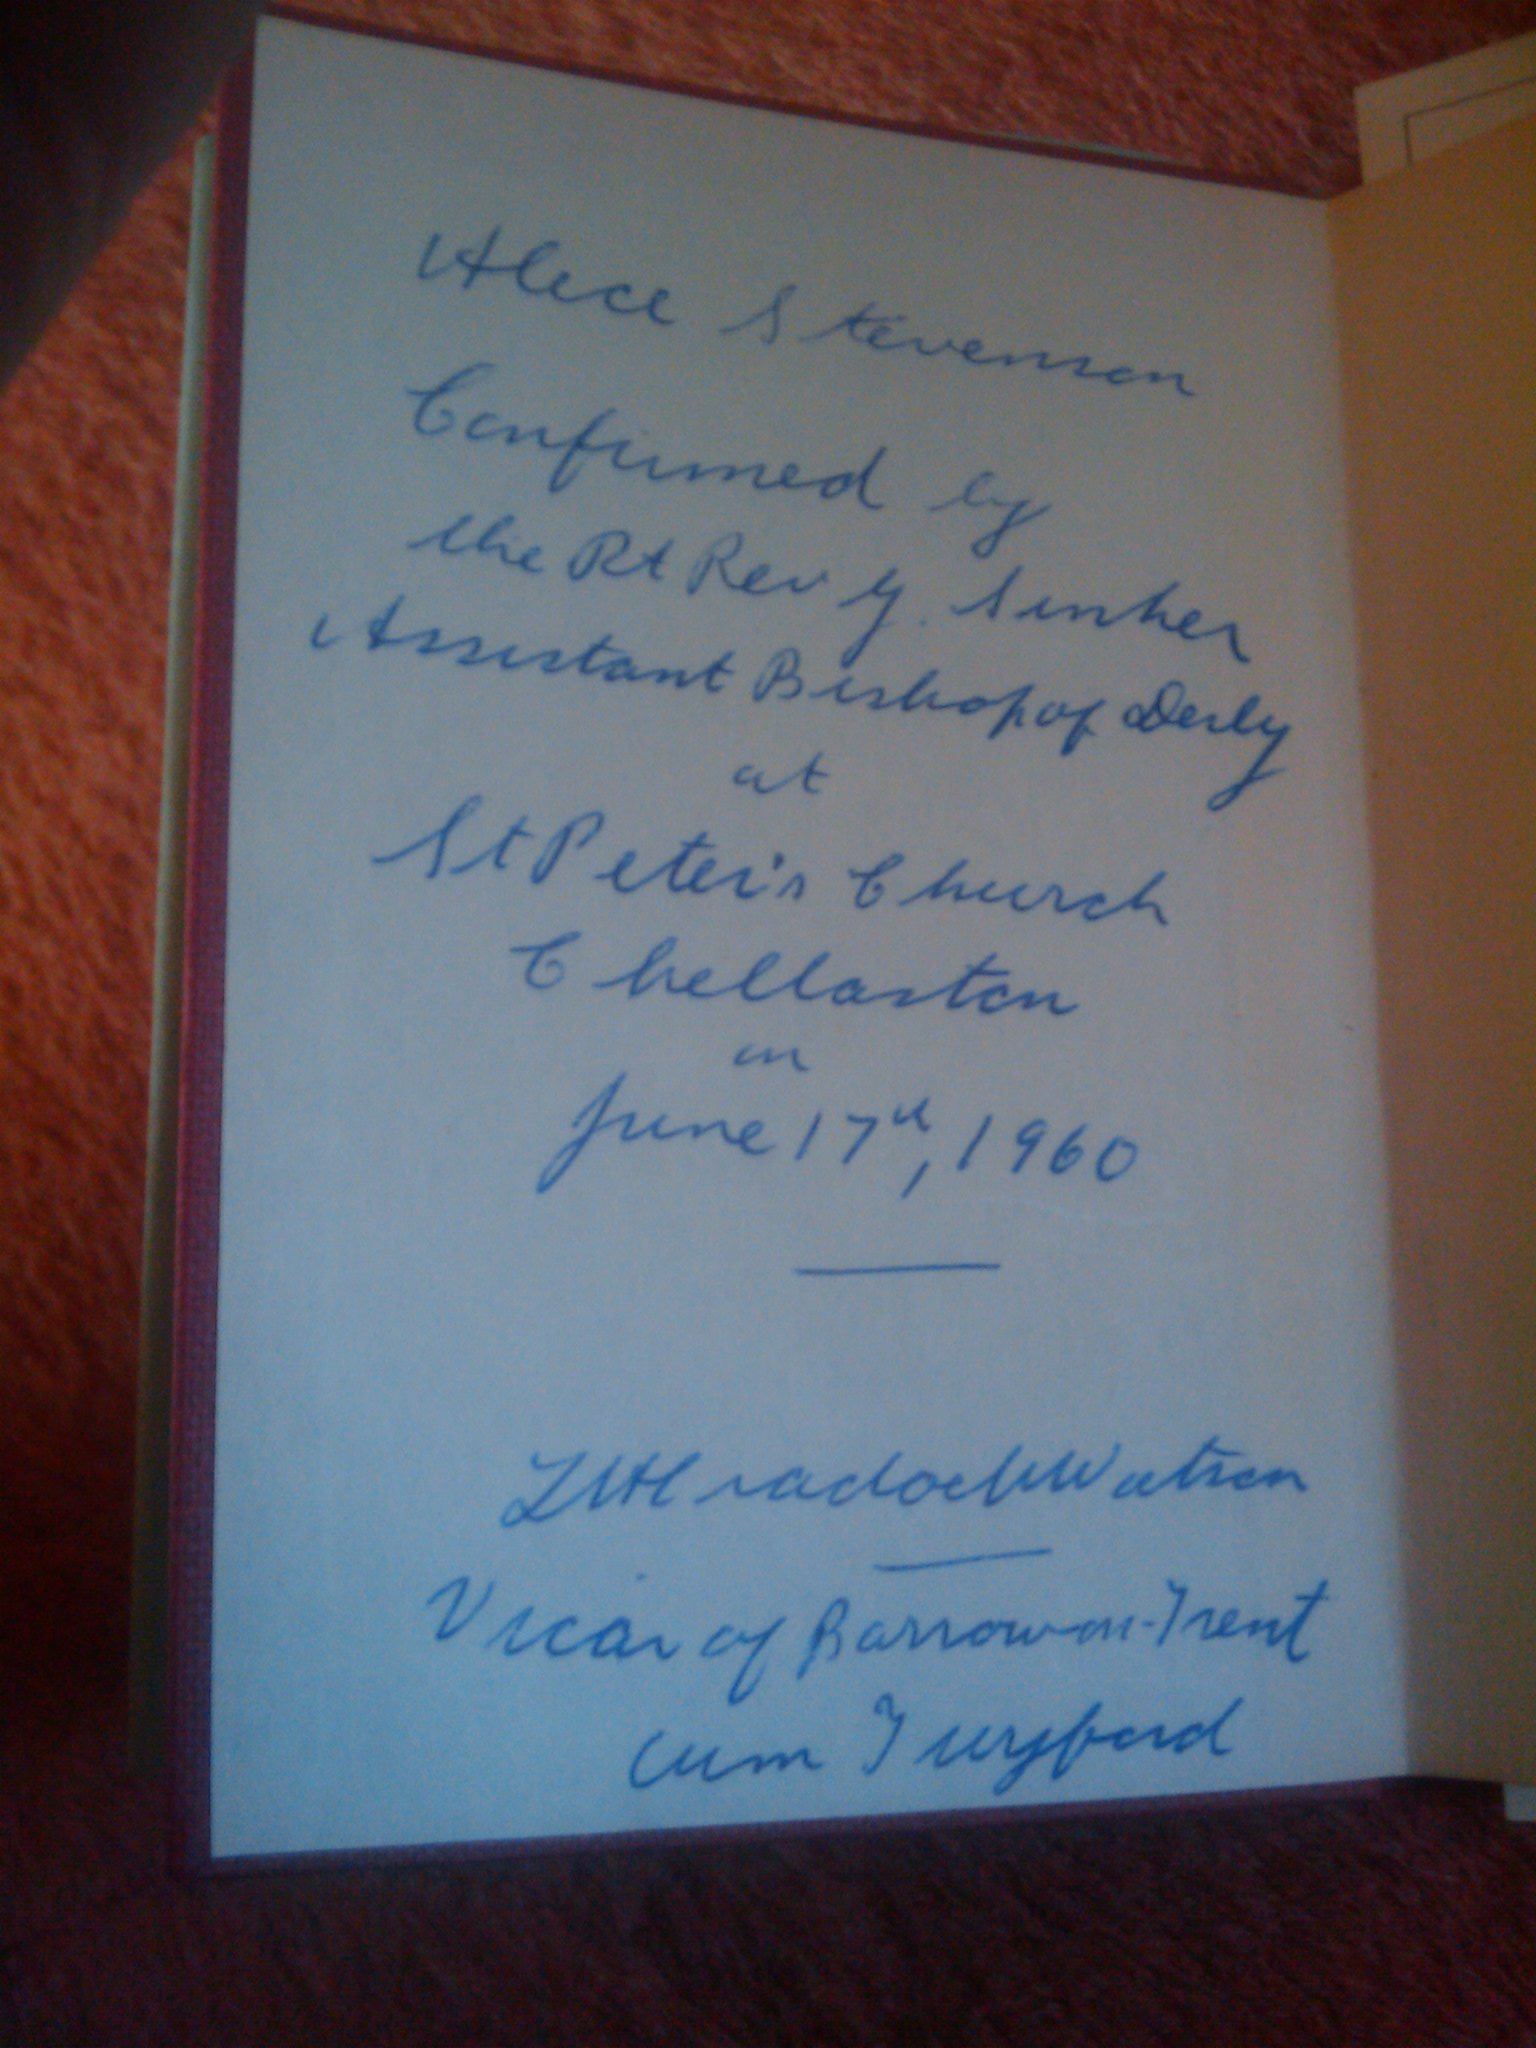 Alice Stevenson
Confirmed by
the Rt Rev G. Sinker
Assistant Bishop of Derby
at
St Peter's Church
Chellaston
on
June 17th, 1960
Watson
Vicar of Barrow-on-Trent
cum Twyford